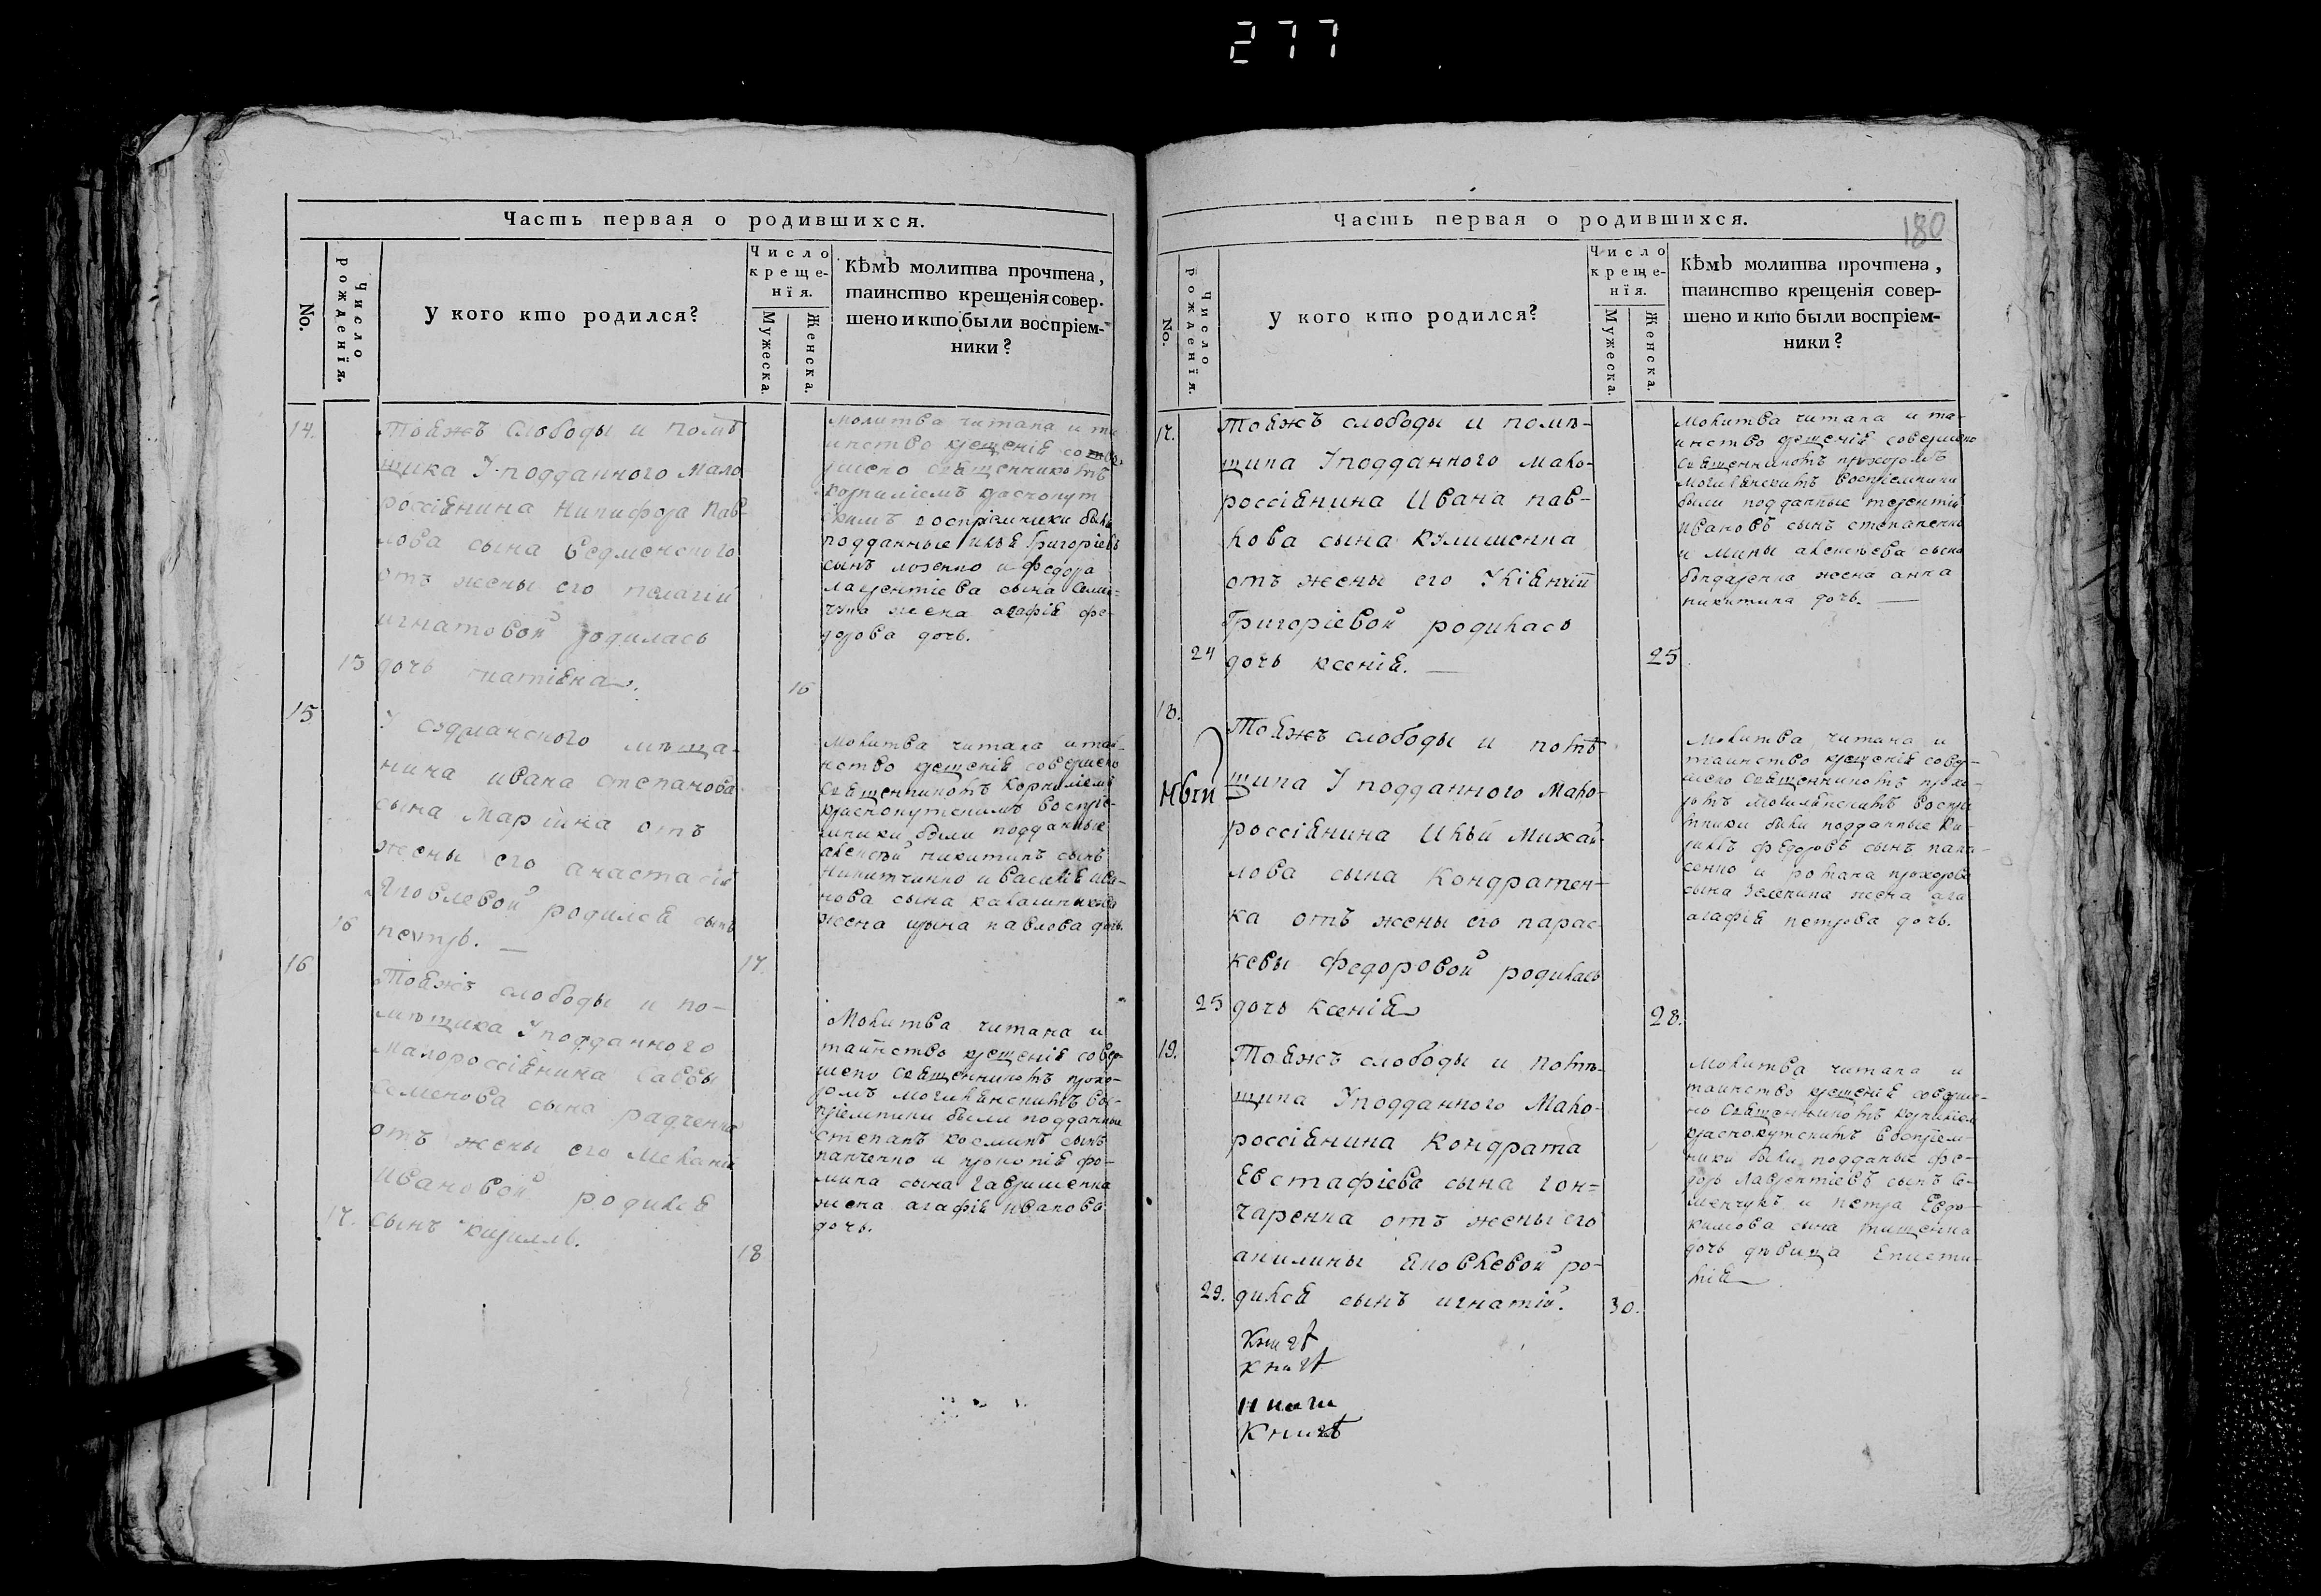 277
Часть первая о родившихся.
No.
Число рожденїя.
У кого кто родился?
Число
креще-
нїя.
Мужеска.
Женска.
Кѣмъ молитва прочтена,
таинство крещенія совер-
шено и кто были воспріем-
ники?
14.
Тояжъ слободы и помѣ
щика У подданного мало
россіянина Никифора Пав-
лова сына
отъ жены его пелагіи
игнатовой родилась
15 дочь татіяна.
16
молитва читана и та
инство крещенія со
ршено священникомъ
корниліемъ краснокут
скимъ воспріемники были
подданные илья Григоріевъ
сынъ и федора
лаврентіева сына
жена агафія фе-
дорова дочь.
15
У мѣща-
нина ивана степанова
сына Марїина отъ
жены его анастасіи
Яковлевой родился сынъ
16 петръ.
17.
молитва читана и таи-
нство крещенія совершено
священникомъ Корниліемъ
краснокутскимъ воспріе-
мники были подданные
алексѣй никитинъ сынъ
никитченко и василія ива-
нова сына
жена ирына павлова дочь.
16
Тояжъ слободы и по-
мѣщика У подданного
малороссіянина Саввы
семенова сына радченка
отъ жены его Меланіи
ивановой родился
17. сынъ кирилъ.
18
Молитва читана и
таинство крещенія совер-
шено священникомъ прохо-
ромъ могилянскимъ вос-
пріемники были подданные
степанъ козминъ сынъ
панченко и прокопія фо-
мина сына гавришенка
жена агафія иванова
дочь.
Часть первая о родившихся.
180
No.
Число рожденїя.
У кого кто родился?
Число
креще-
нїя.
Мужеска.
Женска.
Кѣмъ молитва прочтена,
таинство крещенія совер-
шено и кто были воспріем-
ники?
17.
Тояжъ слободы и помѣ-
щика У подданного мало-
россіянина Ивана пав-
лова сына кулишенка
отъ жены его Уліянїи
Григоріевой родилась
24 дочь ксенія.
25
молитва читана и та-
инство крещенія совершено
священникомъ прохоромъ
могилянскимъ воспріемники
были подданные терентій
ивановъ сынъ степаненко
и мины алексѣева сына
бондаренка жена анна
никитина дочь.
18.
Тояжъ слободы и помѣ
щика У подданного Мало-
россіянина Ильи Михай-
лова сына Кондратен-
ка отъ жены его парас-
кевы Федоровой родилась
25 дочь ксенія
28.
молитва читана и
таинство крещенія совер-
шено священникомъ прохо-
ромъ могилянскимъ воспріе
мники были подданные ки-
рилъ федоровъ сынъ панч-
сенко и романа прохорова
сына зеленина жена ага
агафія петрова дочь.
19.
Тояжъ слободы и помѣ-
щика У подданного Мало-
россіянина Кондрата
Евстафіева сына гон=
чаренка отъ жены его
акилины яковлевой ро-
29. дился сынъ игнатій.
30.
Молитва читана и
таинство крещенія соверше-
но священникомъ корниліем
краснокутскимъ воспріем-
ники были подданые фе-
доръ лаврентіевъ сынъ се-
менчукъ и петра Евдо-
кимова сына тищенка
дочь дѣвица Еписти-
мія
Книгѣ
Книгѣ
Книги
Книгѣ